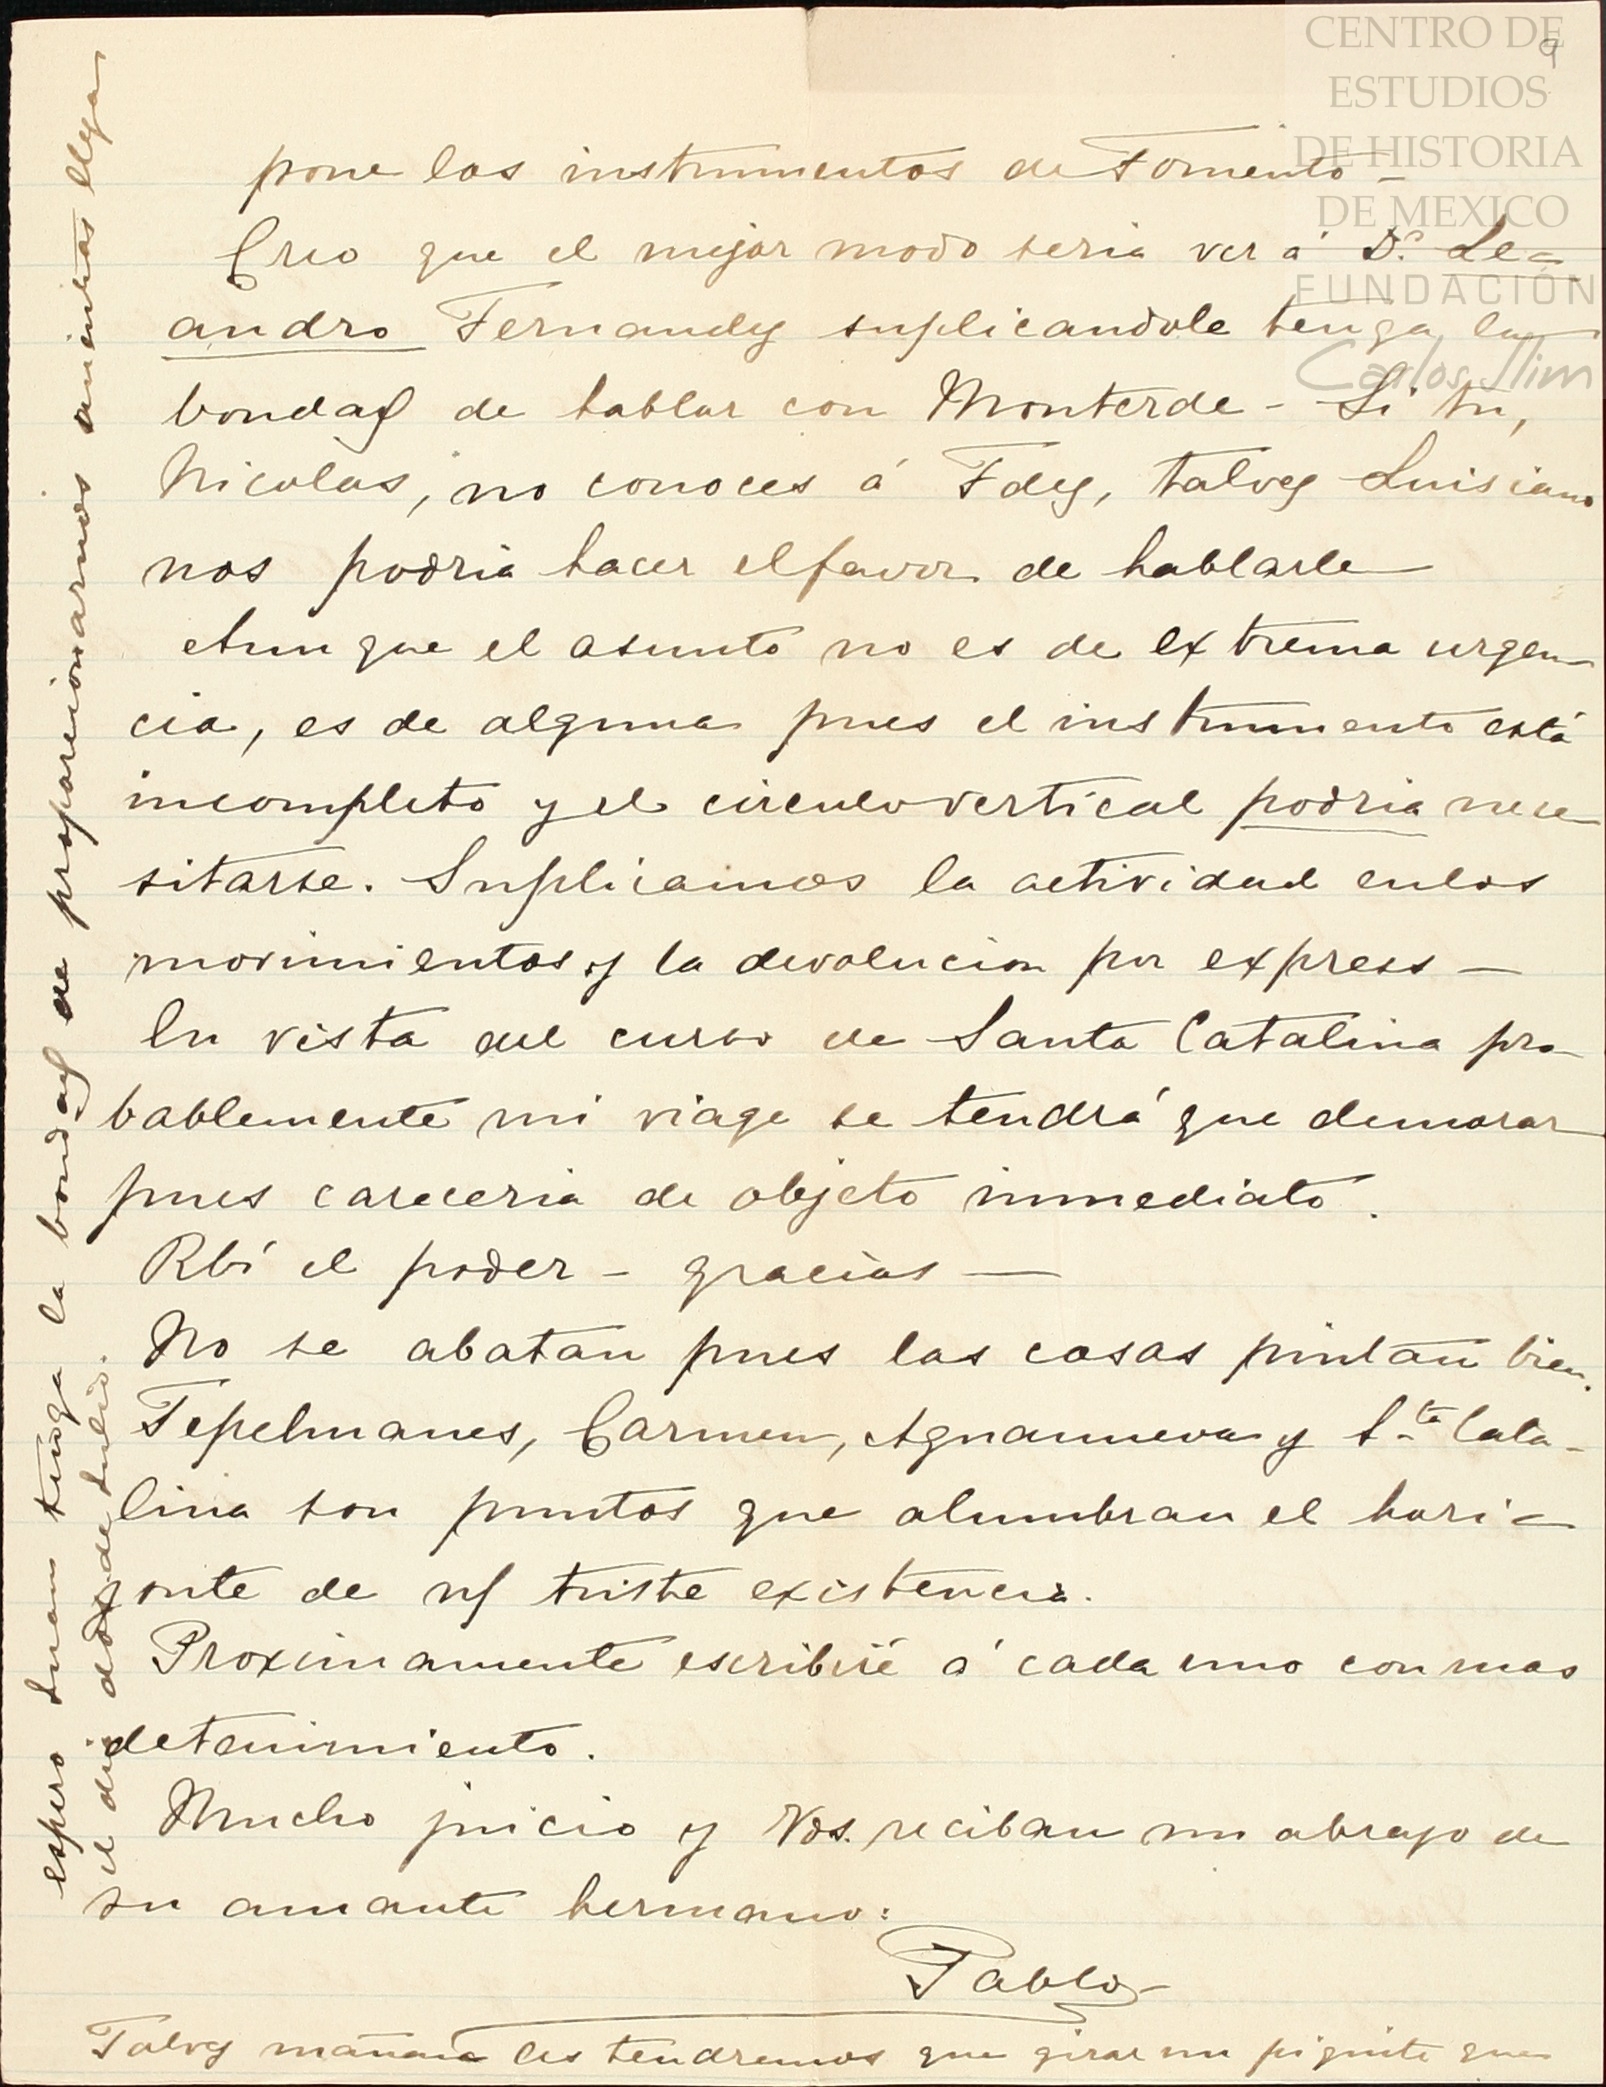 CENTRO DE
ESTUDIOS
DE HISTORIA
DE MEXICO
FUNDACIÓN
Carlos Slim
9
pone los instrumentos de Fomento -
Creo que el mejor modo seria ver á Dn. Le=
andro Fernandez suplicandole tenga la
bondad de hablar con Monterde - Si tu,
Nicolas, no conoces á Fdez, talvez Luisiano
nos podria hacer el favor de hablarle
Aunque el asunto no es de extrema urgen-
cia, es de alguna pues el instrumento está
incompleto y el circulo vertical podria nece-
sitarse. Suplicamos la actividad en los
movimientos y la devolucion por express -
En vista del curso de Santa Catalina pro-
bablemente mi viage se tendrá que demorar
pues careceria de objeto inmediato.
Rbí el poder - gracias -
No se abatan pues las cosas pintan bien.
Tepelmanes, Carmen, Aguanueva y Sta. Cata-
lina son puntos que alumbran el hori=
zonte de nf triste existencia.
Proximamente escribiré á cada uno con mas
detenimiento.
Mucho juicio y Vds. reciban un abrazo de
su amante hermano:
Pablo
Talvez mañana les tendremos que girar un piquito que
espero Juan tenga la bondad de proporcionarnos mientras llega
el dia dos de Julio.